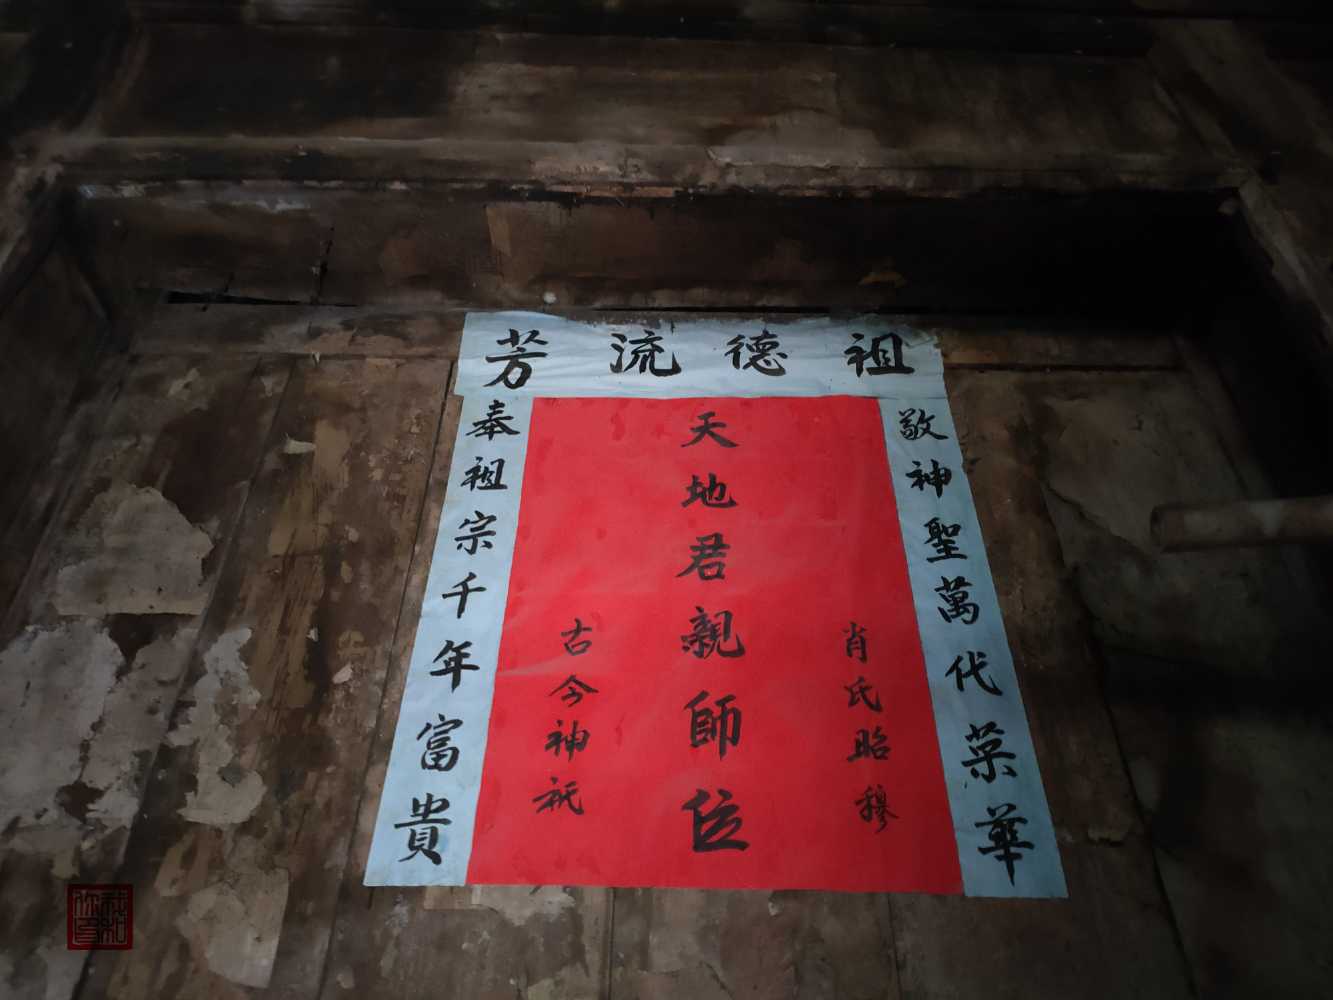 祖德流芳
敬神聖萬代荣華
肖氏昭穆
天地君親師位
古今神祇
奉祖宗千年富貴